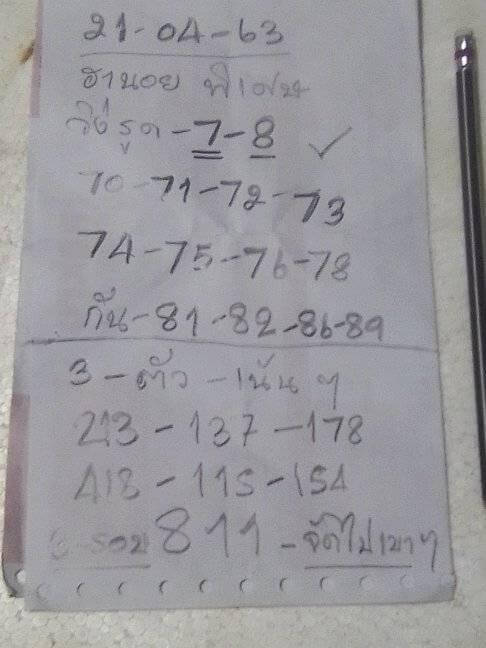 21-04-63
ฮานอย พิเศษ
วิ่งรูด-7-8 ✓
70-71-72-73
74-75-76-78
กัน-81-82-86-89
3-ตัว-เน้นๆ
213-137-178
418-115-154
รอบ 811-จัดไปเบาๆ